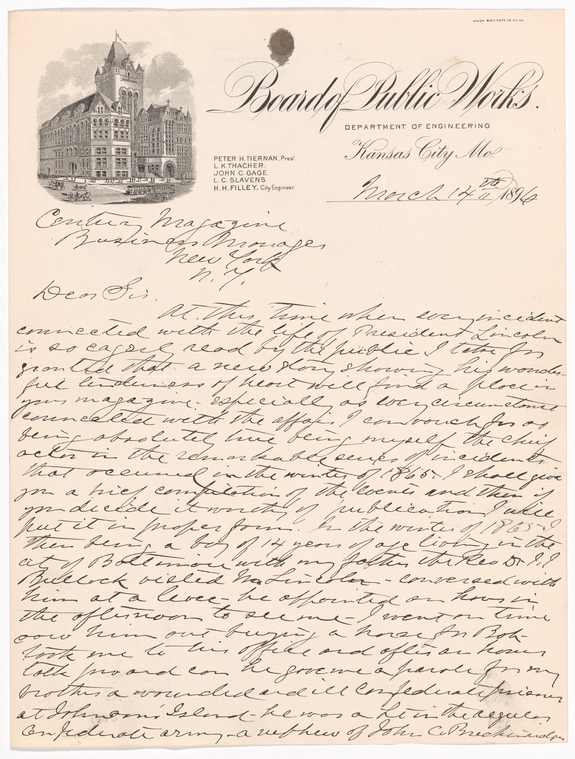 Board of Public Works.
DEPARTMENT OF ENGINEERING
Kansas City, Mo.
PETER H. TIERNAN, Prest
L. K. THACHER.
JOHN C. GAGE.
L. C. SLAVENS.
H. H. FILLEY, City Engineer.
March 14th 1896
Century Magazine
Business Manager
New York
N. Y.
Dear Sir.
At this time when every incident
connected with the life of President Lincoln
is so eagerly read by the public I take for
granted that a new story showing his wonder-
ful tenderness of heart will find a place in
your magazine. especially as every circumstance
connected with the affair I can vouch for as
being absolutely true being myself the chief
actor in the remarkable series of incidents
that occurred in the winter of 1865. I shall give
you a brief compilation of the events and then if
you decide it worthy of publication I will
put it in proper form. In the winter of 1865 I
then being a boy of 14 years of age living in the
city of Baltimore with my father the Rev Dr. J. J.
Bullock visited Mr Lincoln - conversed with
him at a levee - he appointed an hour in
the afternoon to see me - I went on time
saw him out buying a horse for Bob -
took me to his office and after an hours
talk pro and con he gave me a parole for my
brother a wounded and ill confederate prisoner
at Johnson's Island - he was a Lt in the regular
Confederate army - a nephew of John C. Breckinridge